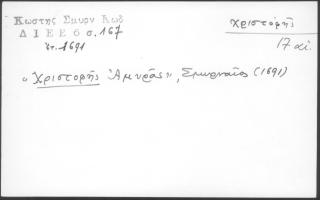 Κωστης Σμυρν Κωδ
Δ Ι Ε Ε 6 σ. 167
ἔτ. 1691
Χριστορῆς
17 αἰ.
"Χριστορῆς Ἀμυρᾶς", Σμυρναῖος (1691)